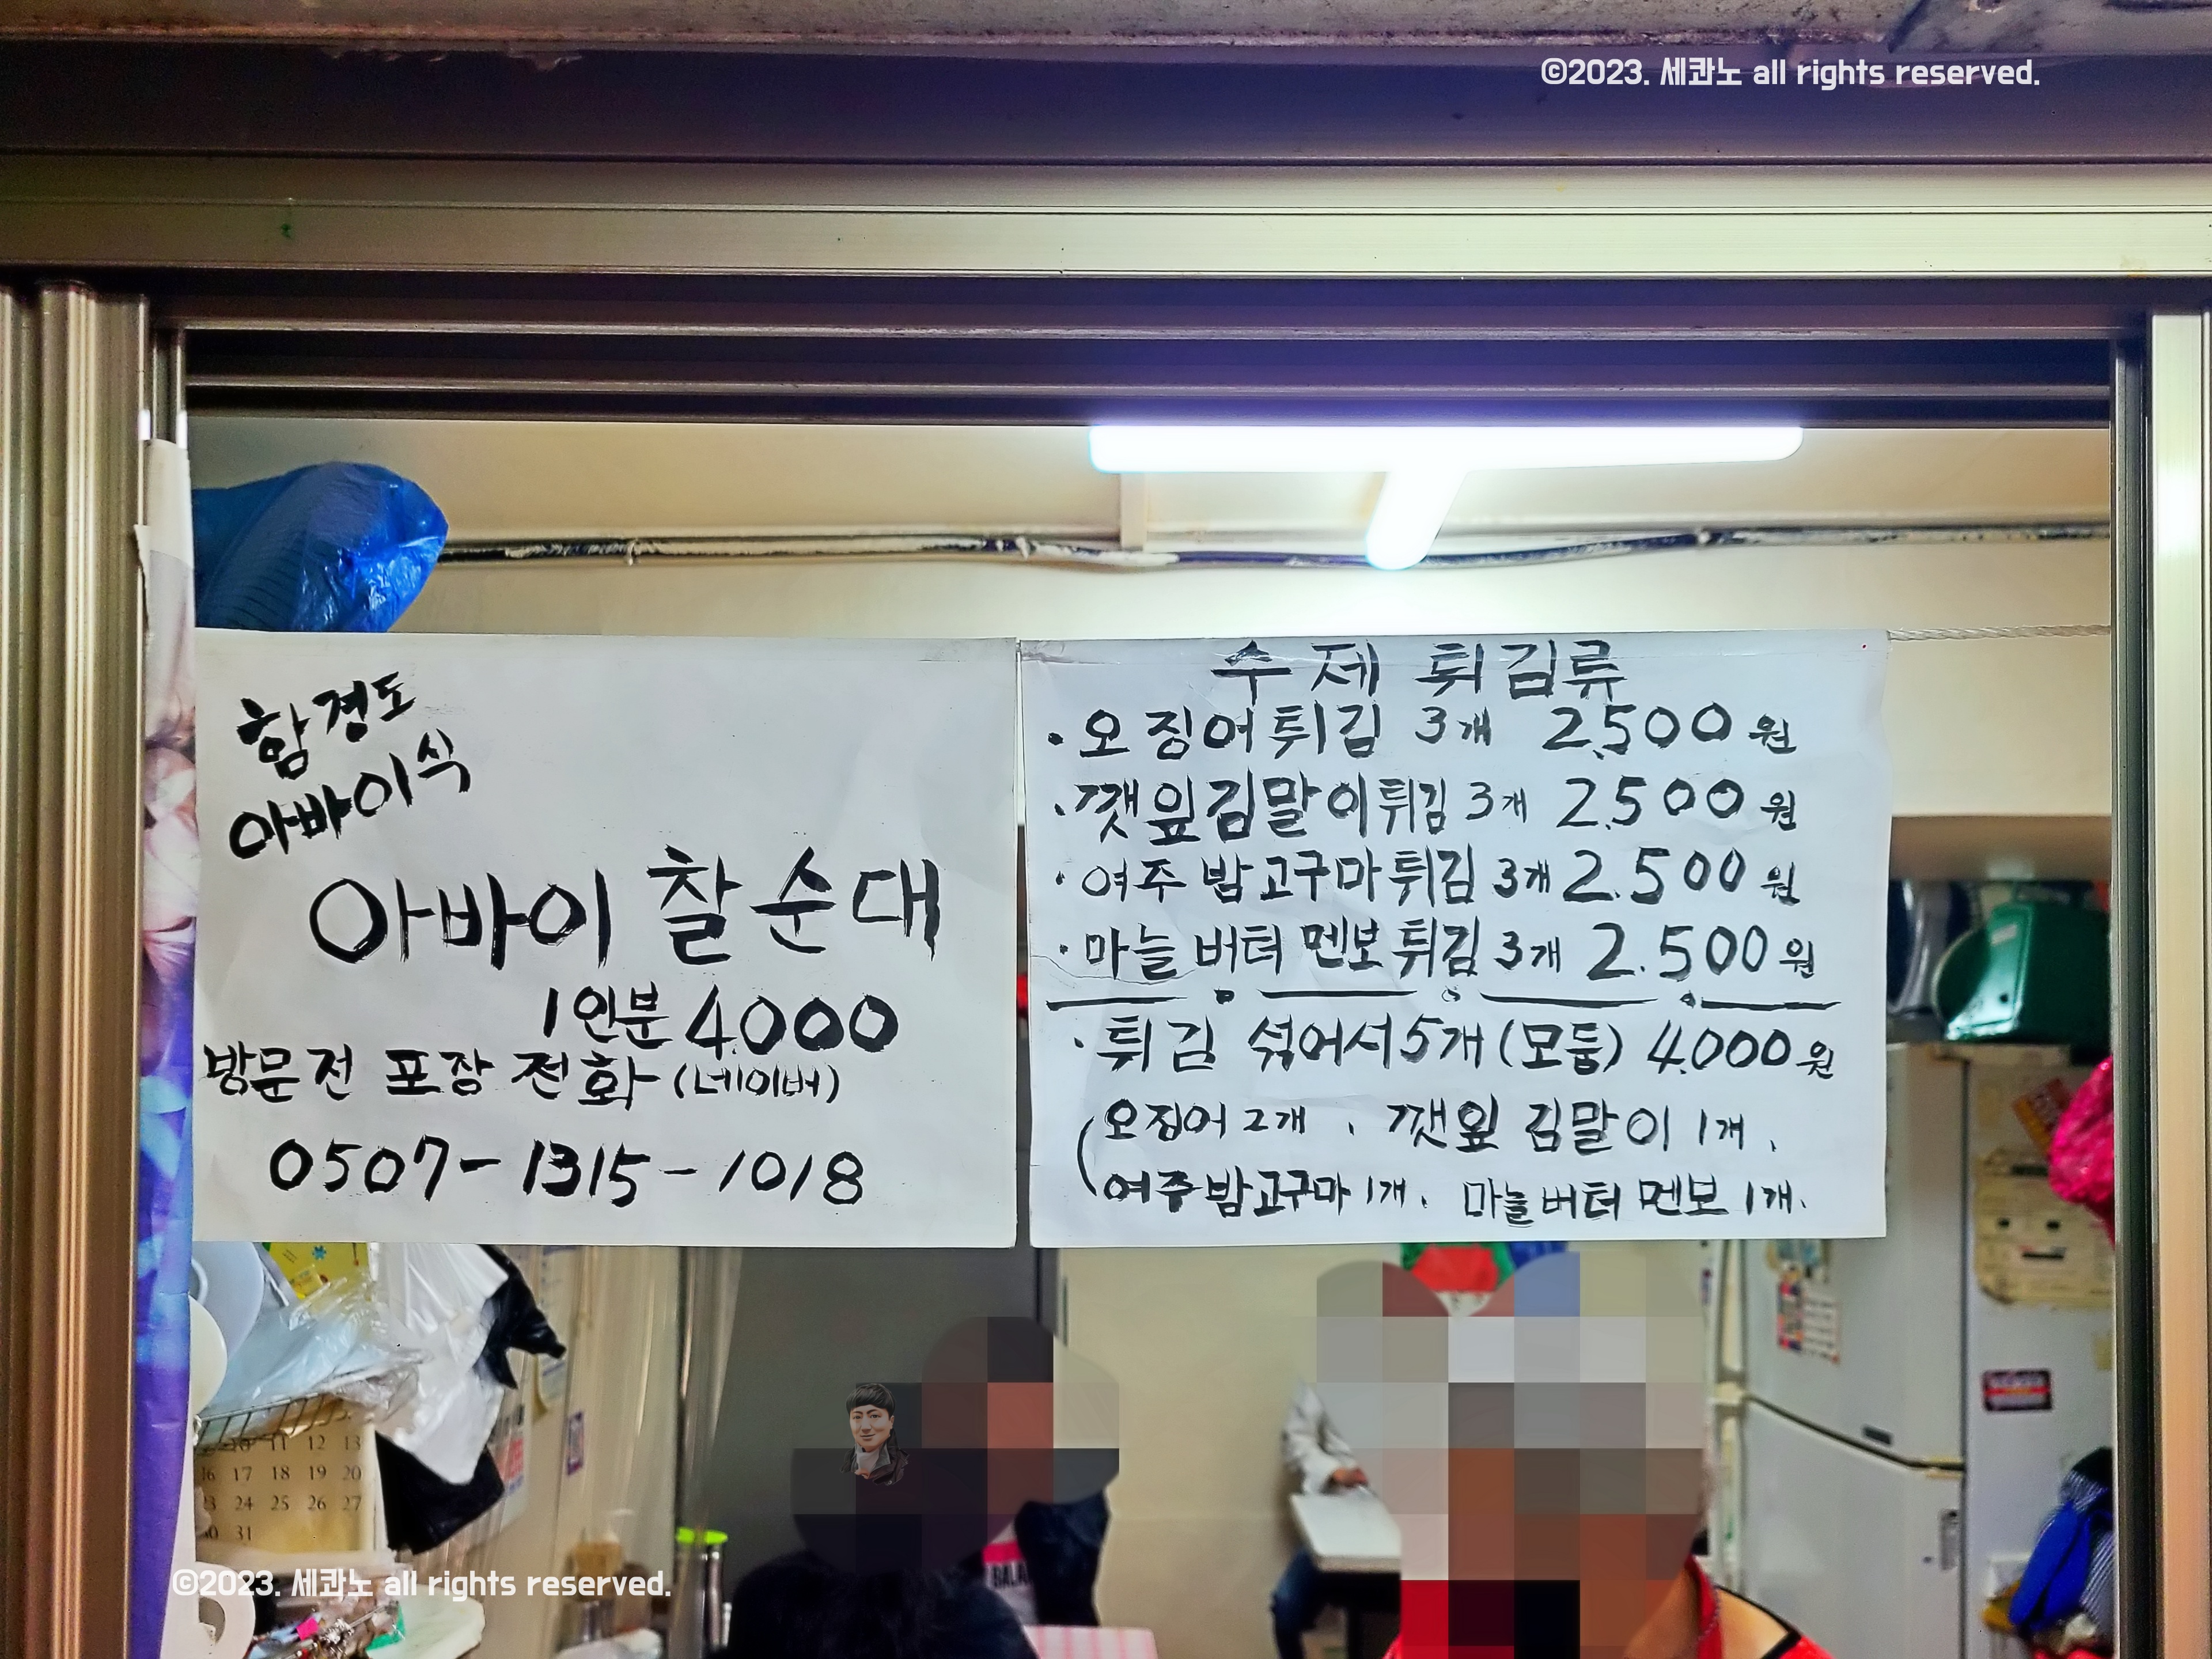 ©2023. 세콰노 all rights reserved.
함경도
아바이식
아바이 찰순대
1인분 4.000
방문전 포장 전화 (네이버)
0507-1315-1018
수제 튀김류
· 오징어튀김 3개 2,500원
· 깻잎김말이튀김 3개 2,500원
· 여주 밤고구마튀김 3개 2.500원
· 마늘버터 멘보튀김 3개 2.500원
· 튀김 섞어서 5개 (모듬) 4.000원
(오징어 2개 , 깻잎 김말이 1개 ,
여주밤고구마 1개. 마늘버터 멘보 1개.
10 11 12 13
16 17 18 19 20
24 25 26 27
31
©2023. 세콰노 all rights reserved.